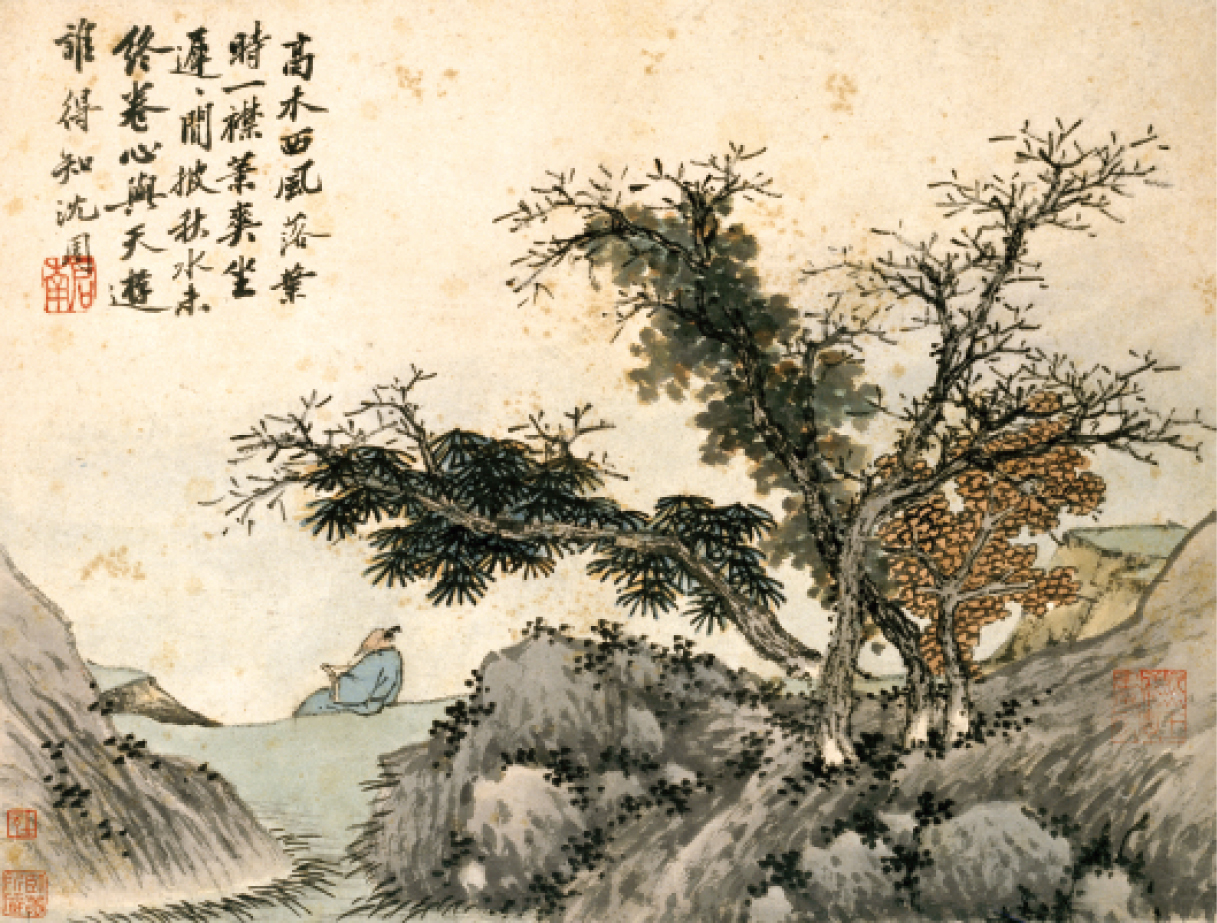 高木西風落葉
時一襟蕭爽坐
遲、閒披秋水未
終卷心與天遊
誰得知沈周
啟南